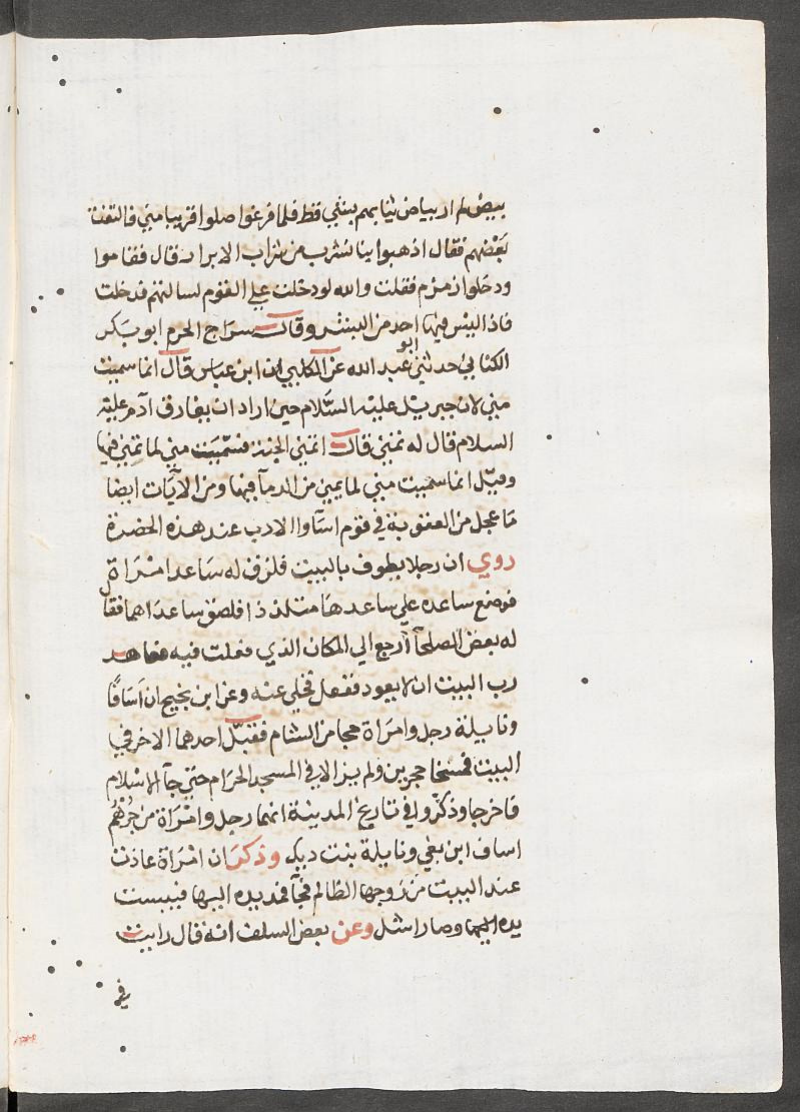 بيض لم ار بياض ثيابهم بشي قط فلما فرغوا صلوا قريبا مني فالتفت
بعضهم فقال اذهبوا بنا نشرب من شراب الابرار قال فقاموا
ودخلوا زمزم فقلت والله لو دخلت علي القوم لسالتهم فدخلت
فاذا ليس فيها احد من البشر وقال سراج الحرم ابو بكر
الكتابي حدثني ابو عبد الله عن الكلبي ان ابن عباس قال انما سميت
مني لان جبريل عليه السلام حين اراد ان يفارق آدم عليه
السلام قال له تمني قال اتمني الجنة فسميت مني لما تمني فيها
وقيل انما سميت مني لما يمني من الدمآ فيها ومن الآيات ايضا
ما عجل من العقوبة في قوم اسآوا الادب عند هذه الحضرة
روي ان رجلا يطوف بالبيت فلزق له ساعد امراة
فوضع ساعده علي ساعدها متلذذا فلصق ساعداهما فقال
له بعض الصلحآ ارجع الي المكان الذي فعلت فيه فعاهد
رب البيت ان لا يعود ففعل فخلي عنه وعن ابن نجيح ان اسافا
ونايلة رجل وامراة حجا من الشام فقبل احدهما الاخر في
البيت فمسخا حجرين ولم يزالا في المسجد الحرام حتي جآ الاسلام
فاخرجا وذكروا في تاريخ المدينة انهما رجل وامراة من جرهم
اساف ابن بغي ونايلة بنت ديك وذكر ان امراة عاذت
عند البيت من زوجها الظالم فجآ فمد يده اليها فيبست
يده اليها وصار اشل وعن بعض السلف انه قال رايت
في